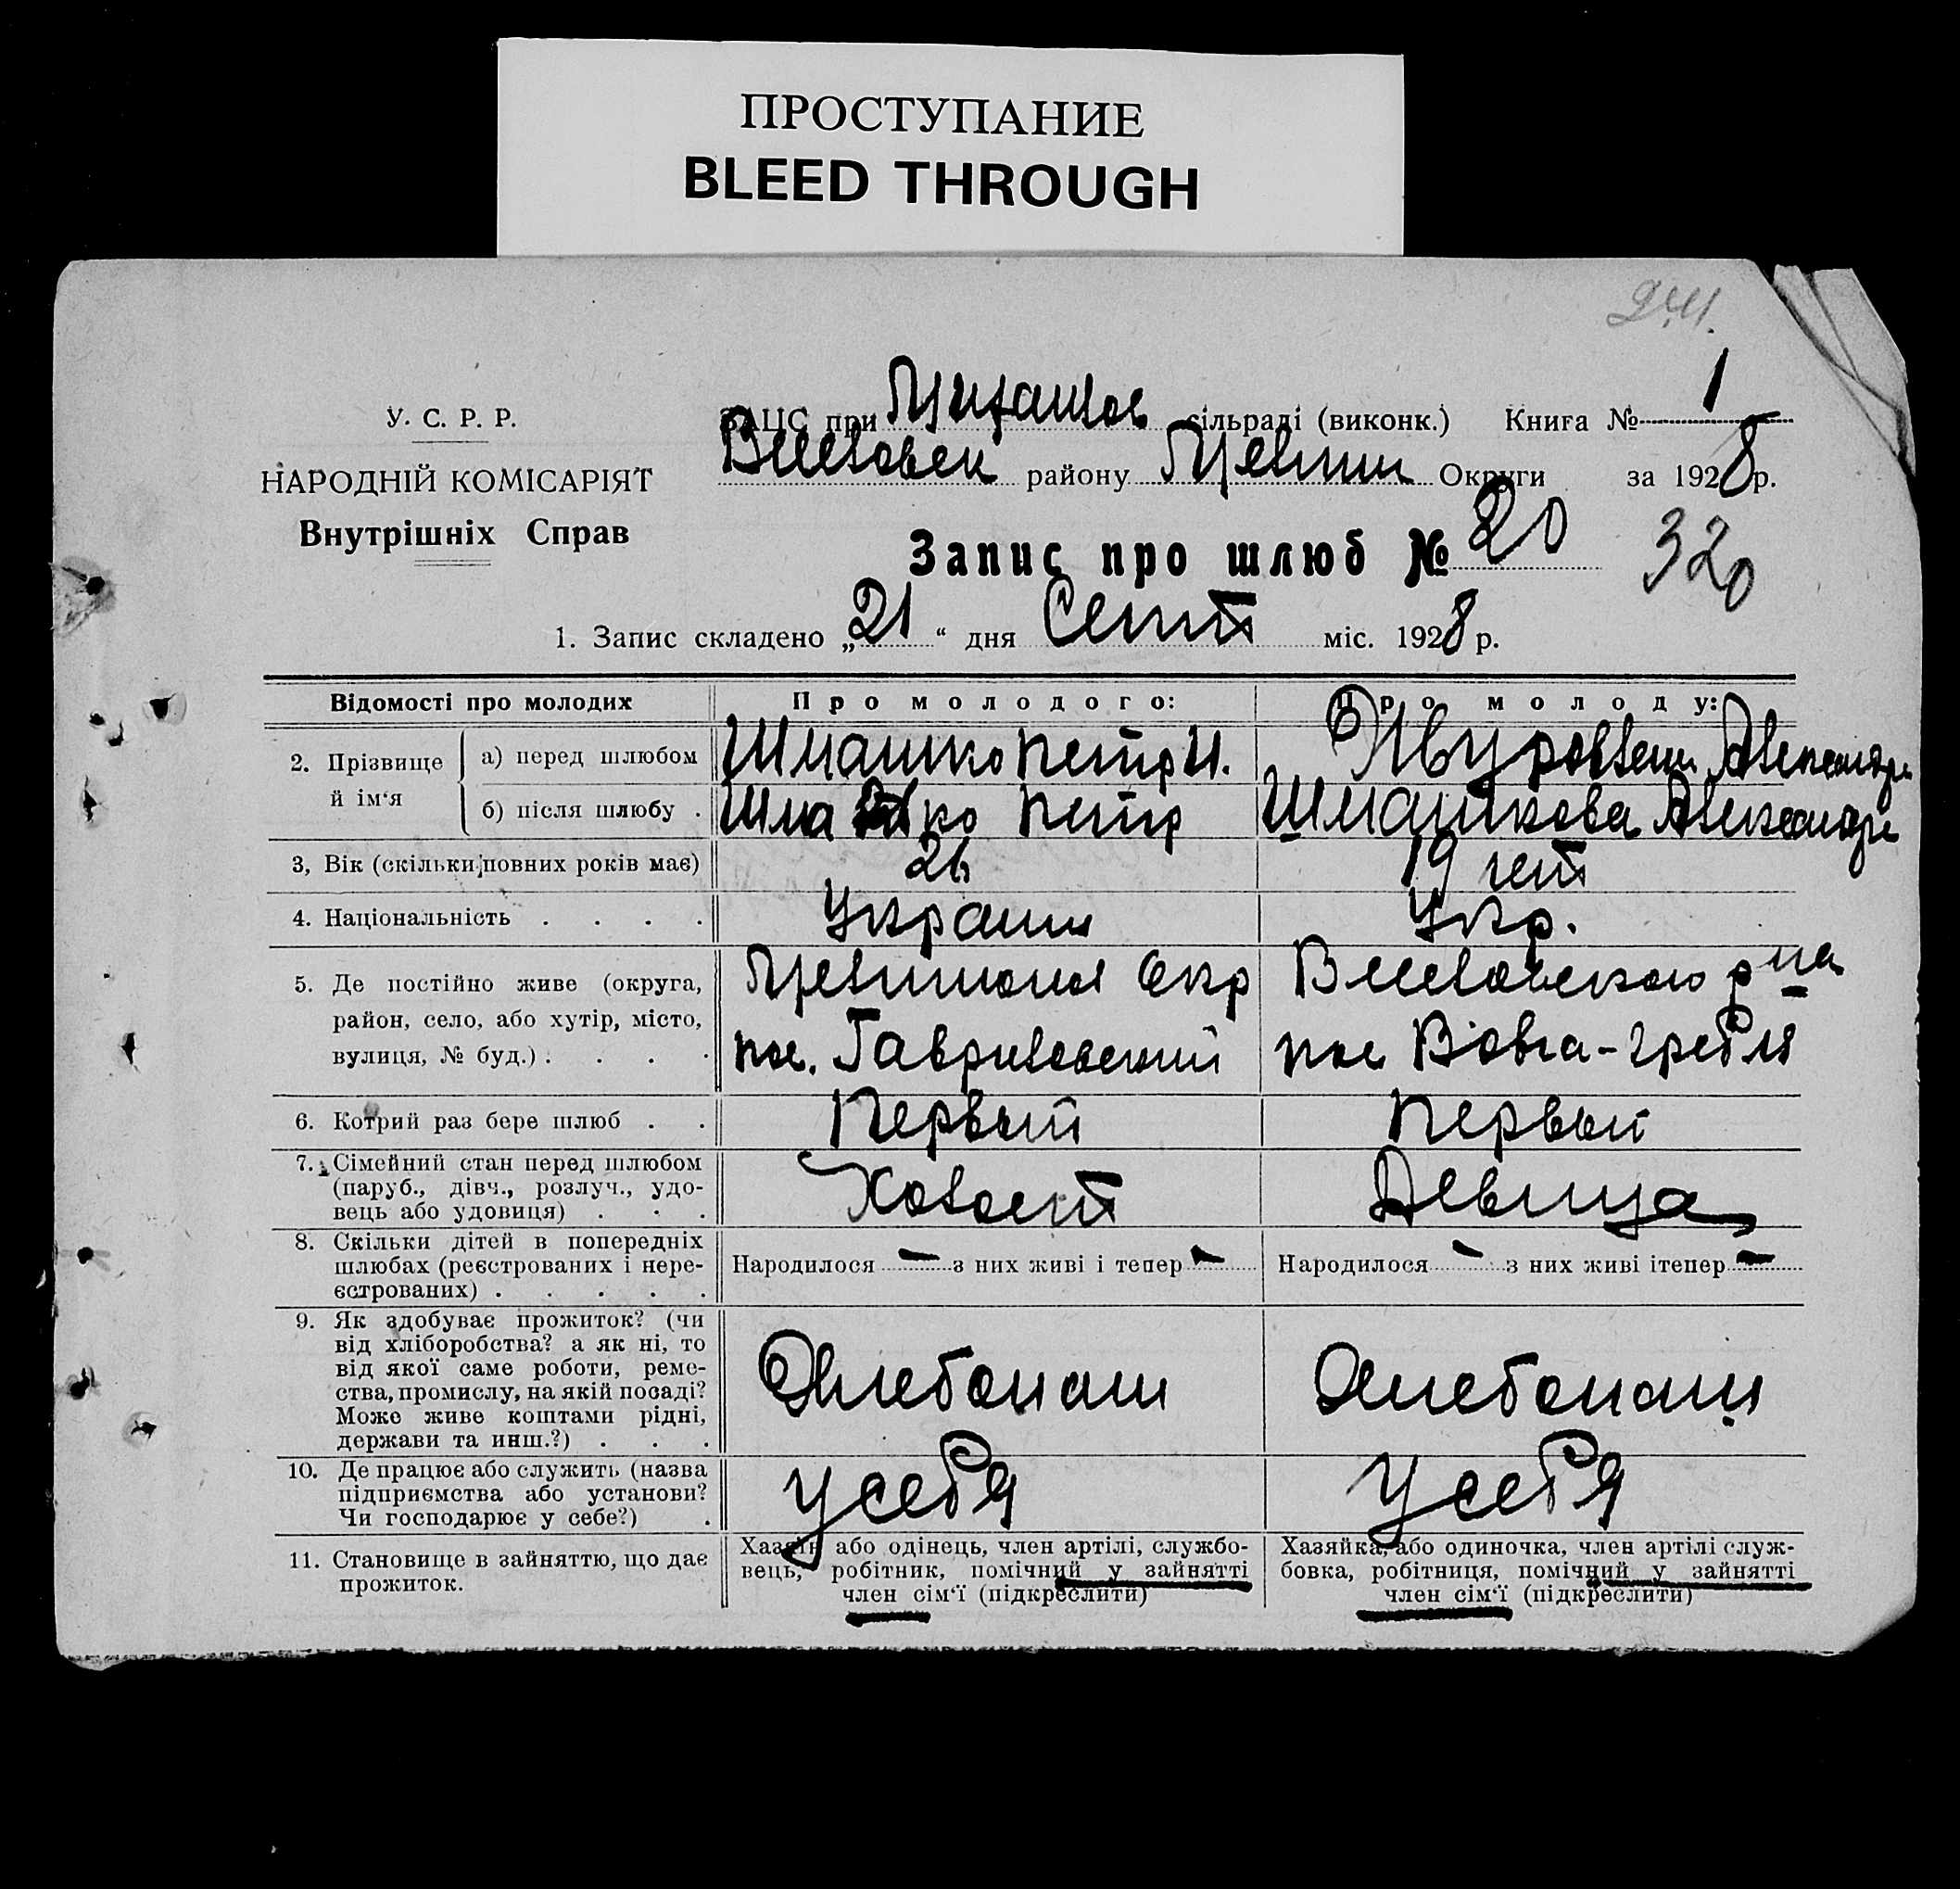 ПРОСТУПАНИЕ
BLEED THROUGH
У. С. Р. Р.
НАРОДНІЙ КОМІСАРІЯТ
Внутрішніх Справ
ЗАЦС при сільраді (виконк.) Книга № 1
району Округи за 1928 р.
Запис про шлюб № 20
320
1. Запис складено „21“ дня Сент міс. 1928 р.
Відомості про молодих
Про молодого:
Про молоду:
2. Прізвище й ім'я
а) перед шлюбом
Шмашко Петр И.
б) після шлюбу .
Петр
Шмашкова Александра
3, Вік (скільки повних років має)
26
19 лет
4. Національність . . . .
Украин
Укр.
5. Де постійно живе (округа,
район, село, або хутір, місто,
вулиця, № буд.) . . . .
Окр
пос. Гавриловский
р на
пос Вовча-гребля
6. Котрий раз бере шлюб . .
Первый
Первый
7. Сімейний стан перед шлюбом
(паруб., дівч., розлуч., удо-
вець або удовиця) . . .
Холост
Девица
8. Скільки дітей в попередніх
шлюбах (реєстрованих і нере-
єстрованих) . . . . .
Народилося — з них живі і тепер —
Народилося — з них живі ітепер —
9. Як здобуває прожиток? (чи
від хліборобства? а як ні, то
від якої саме роботи, реме-
ства, промислу, на якій посаді?
Може живе коштами рідні,
держави та инш.?) . . .
Хлебопаш
Хлебопаш
10. Де працює або служить (назва
підприємства або установи?
Чи господарює у себе?) .
У себя
У себя
11. Становище в зайняттю, що дає
прожиток.
Хазяїн або одінець, член артілі, службо-
вець, робітник, помічний у зайнятті
член сім'ї (підкреслити)
Хазяйка, або одиночка, член артілі служ-
бовка, робітниця, помічний у зайнятті
член сім'ї (підкреслити)